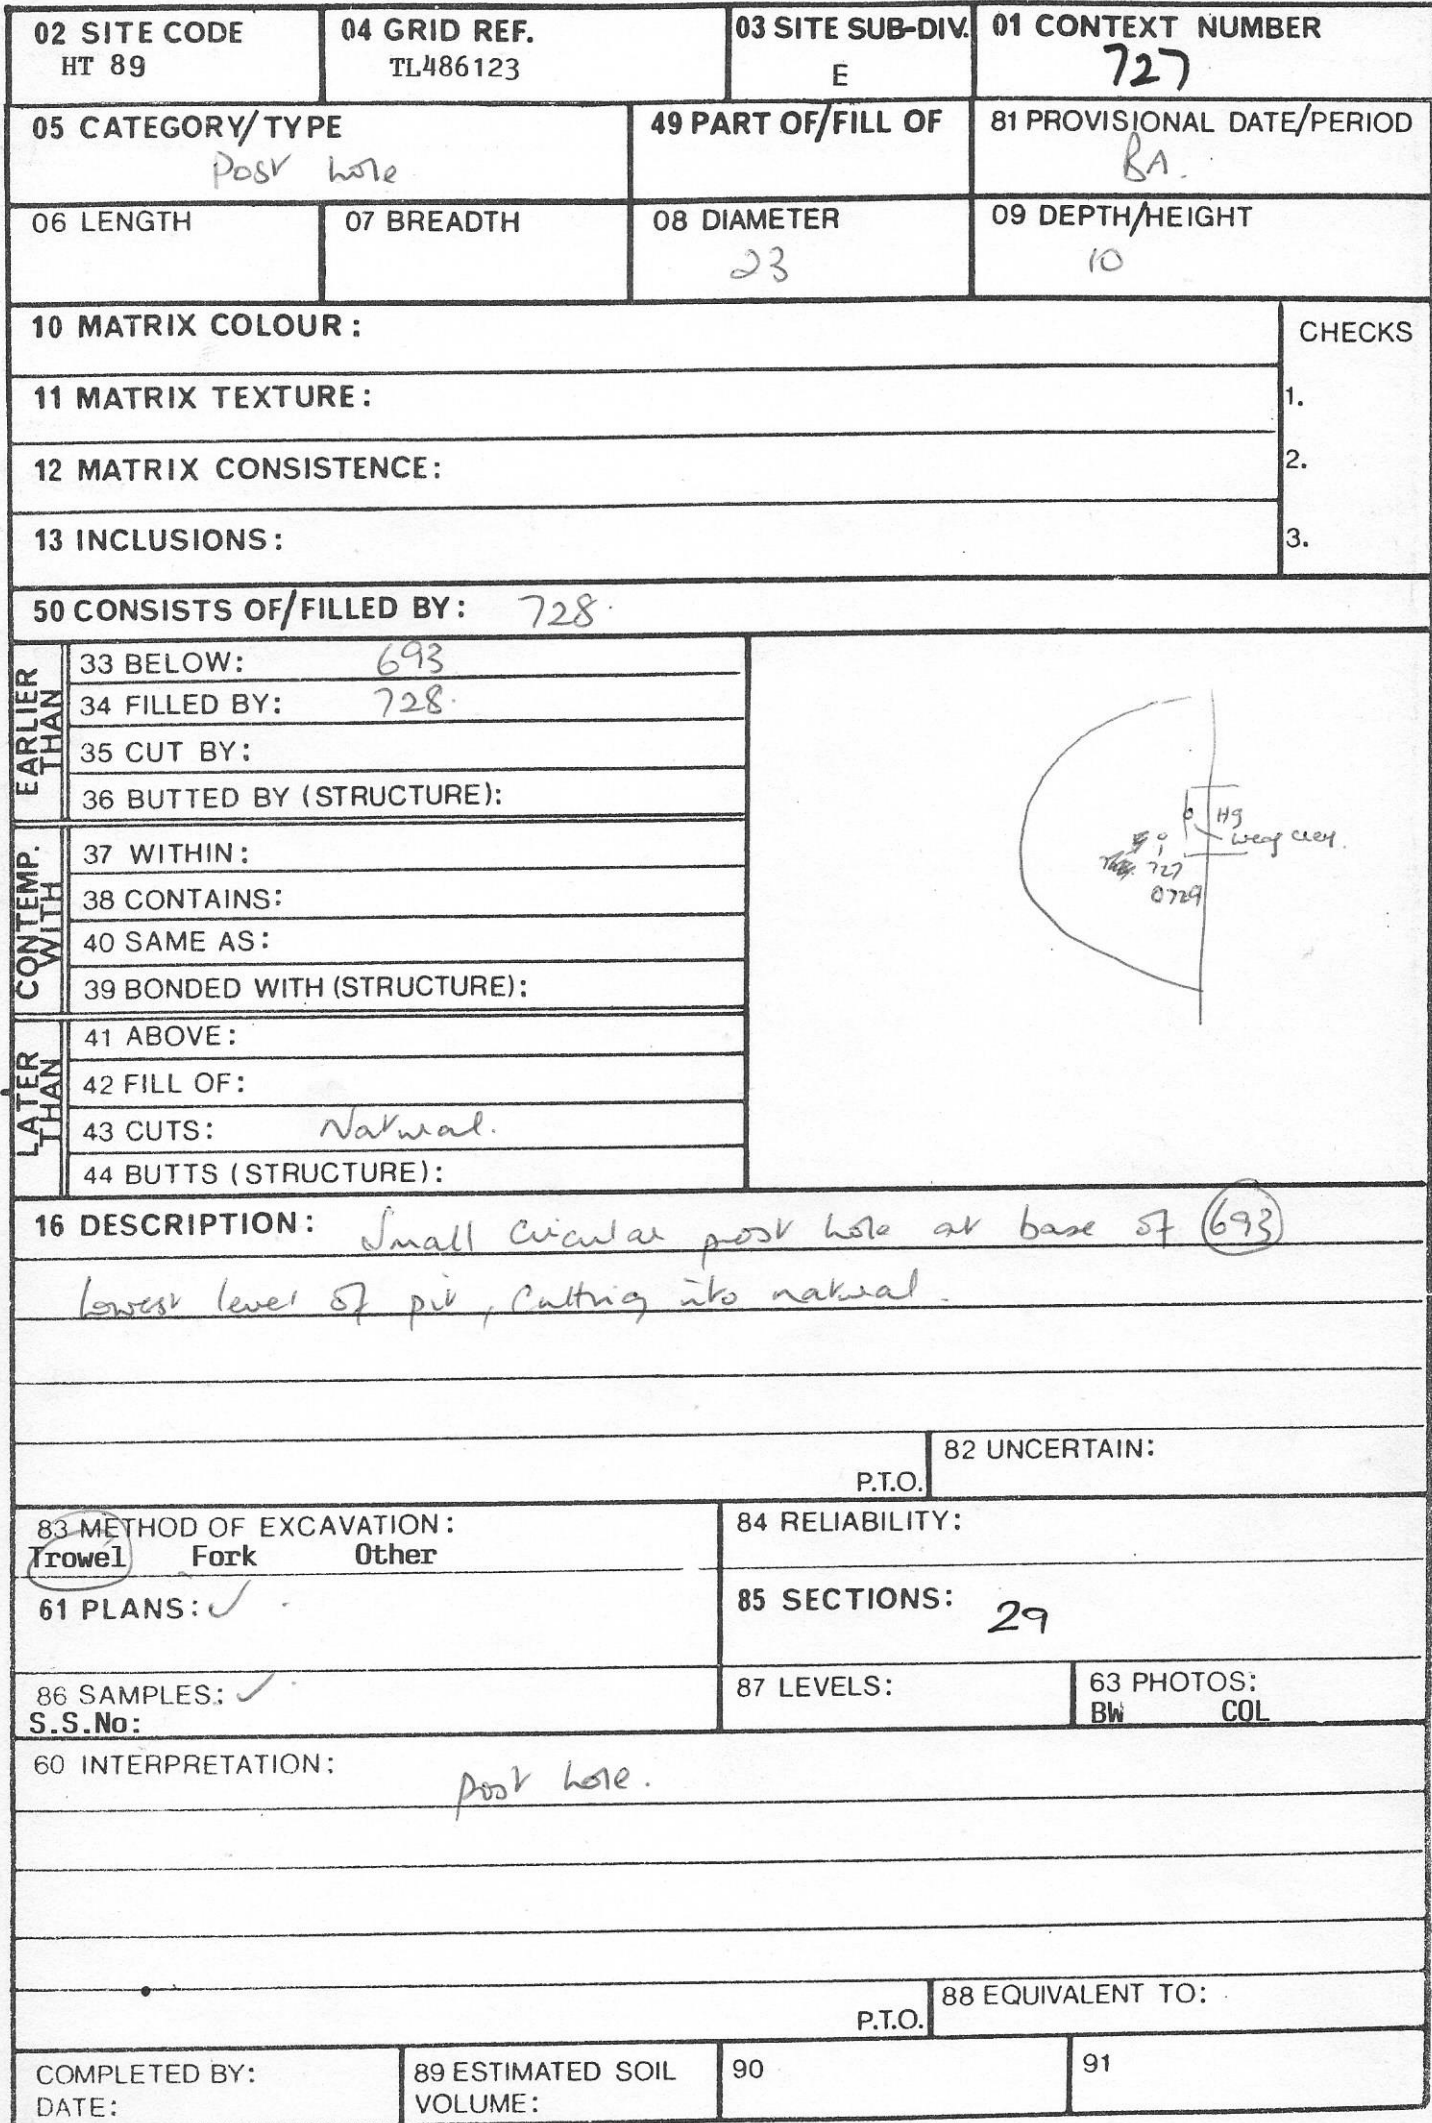 02 SITE CODE
HT 89
04 GRID REF.
TL486123
03 SITE SUB-DIV.
E
01 CONTEXT NUMBER
727
05 CATEGORY/TYPE
Post hole
49 PART OF/FILL OF
81 PROVISIONAL DATE/PERIOD
BA.
06 LENGTH
07 BREADTH
08 DIAMETER
23
09 DEPTH/HEIGHT
10
10 MATRIX COLOUR:
CHECKS
11 MATRIX TEXTURE:
1.
12 MATRIX CONSISTENCE:
2.
13 INCLUSIONS:
3.
50 CONSISTS OF/FILLED BY: 728.
EARLIER THAN
33 BELOW: 693
34 FILLED BY: 728.
35 CUT BY:
36 BUTTED BY (STRUCTURE):
CONTEMP. WITH
37 WITHIN:
38 CONTAINS:
40 SAME AS:
39 BONDED WITH (STRUCTURE):
LATER THAN
41 ABOVE:
42 FILL OF:
43 CUTS: Natural.
44 BUTTS (STRUCTURE):
H9
727
729
16 DESCRIPTION: Small circular post hole at base of 693
lowest level of pit, cutting into natural.
P.T.O.
82 UNCERTAIN:
83 METHOD OF EXCAVATION:
Trowel Fork Other
84 RELIABILITY:
61 PLANS: ✓
85 SECTIONS: 29
86 SAMPLES: ✓
S.S.No:
87 LEVELS:
63 PHOTOS:
BW COL
60 INTERPRETATION:
post hole.
P.T.O.
88 EQUIVALENT TO:
COMPLETED BY:
DATE:
89 ESTIMATED SOIL
VOLUME:
90
91